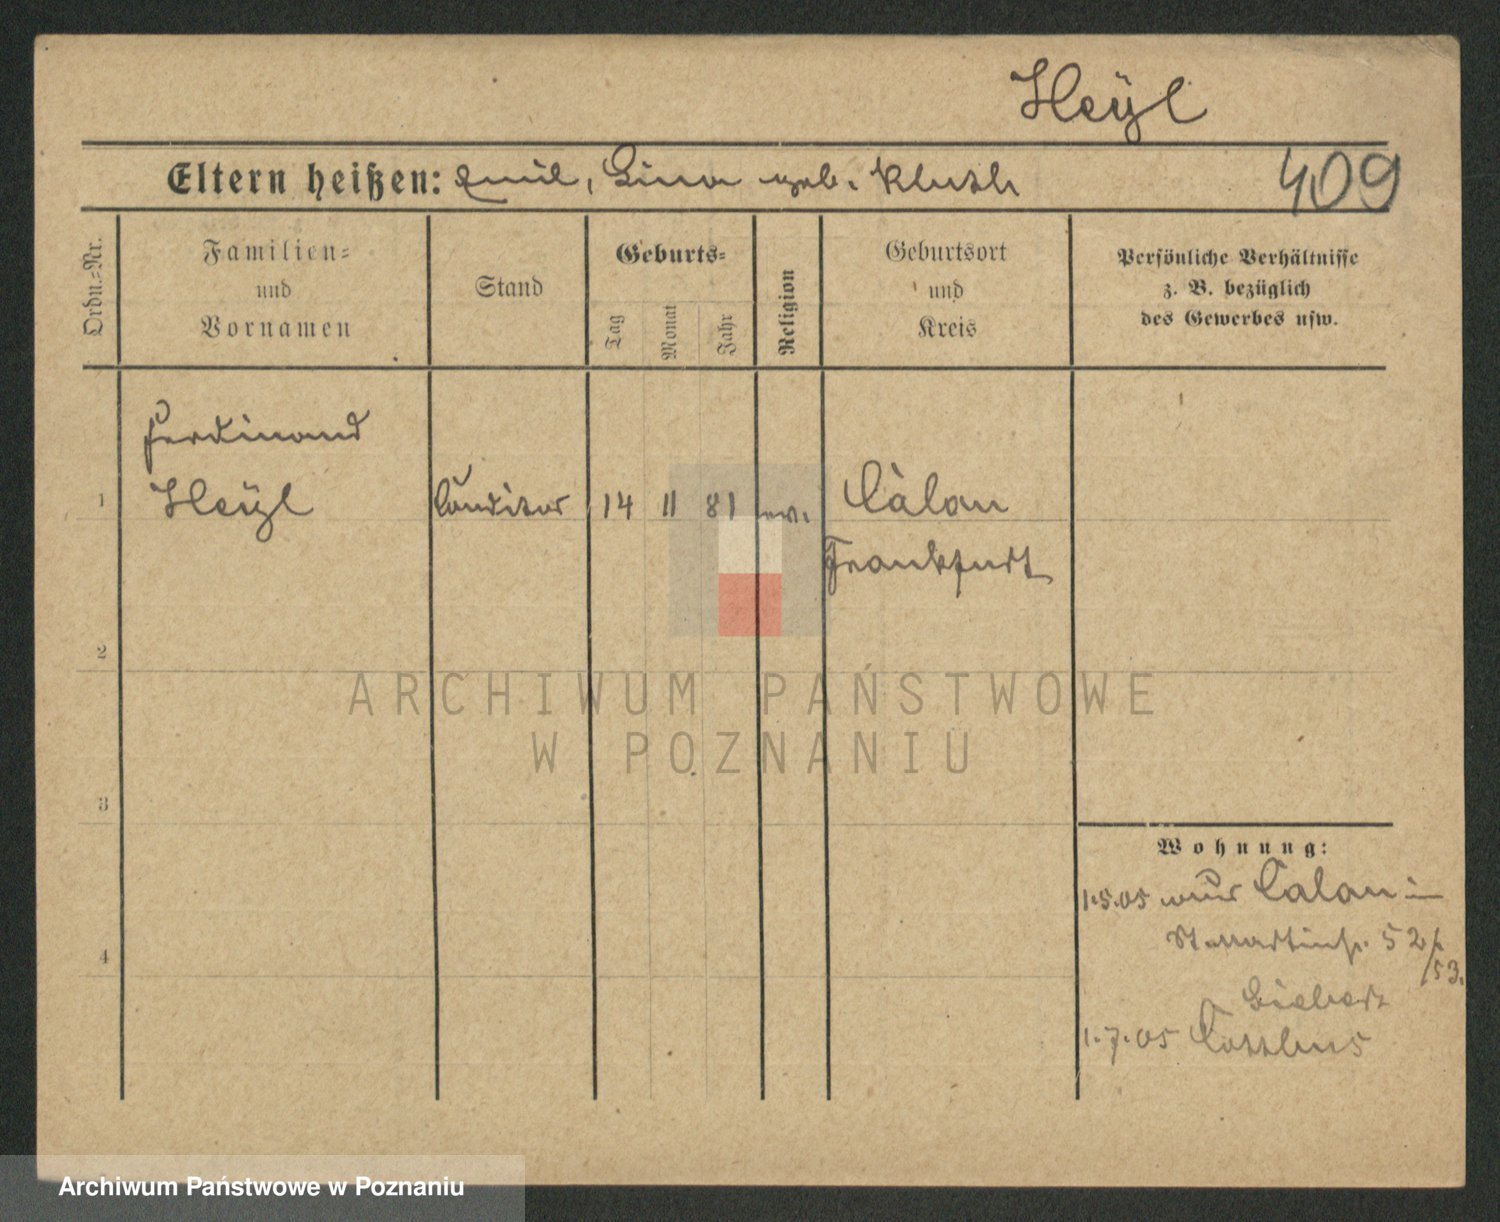 Heÿl
Eltern heißen: Emil, Lina geb. Klusch
409
Ordn.-Nr.
Familien-
und
Vornamen
Stand
Geburts-
Tag
Monat
Jahr
Religion
Geburtsort
und
Kreis
Persönliche Verhältnisse
z. B. bezüglich
des Gewerbes usw.
Ferdinand
1 Heÿl Conditor 14 11 81 ev. Calau
Frankfurt
2
3
4
Wohnung:
1.5.05 Calau in
St. Martinstr. 52/
53.
1.7.05 Cottbus
ARCHIWUM PAŃSTWOWE
W POZNANIU
Archiwum Państwowe w Poznaniu